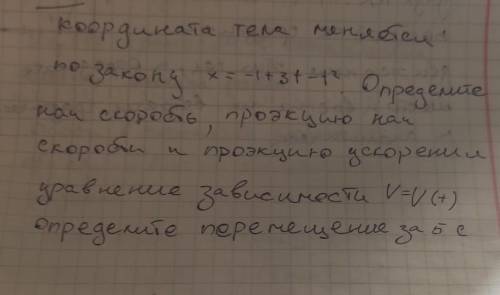 координата тела меняется
по закону x = -1+3t-t². Определите
нач скорость, проэкцию нач
скорости и проэкцию ускорения
уравнение зависимости V=V(t)
определите перемещение за 5 с